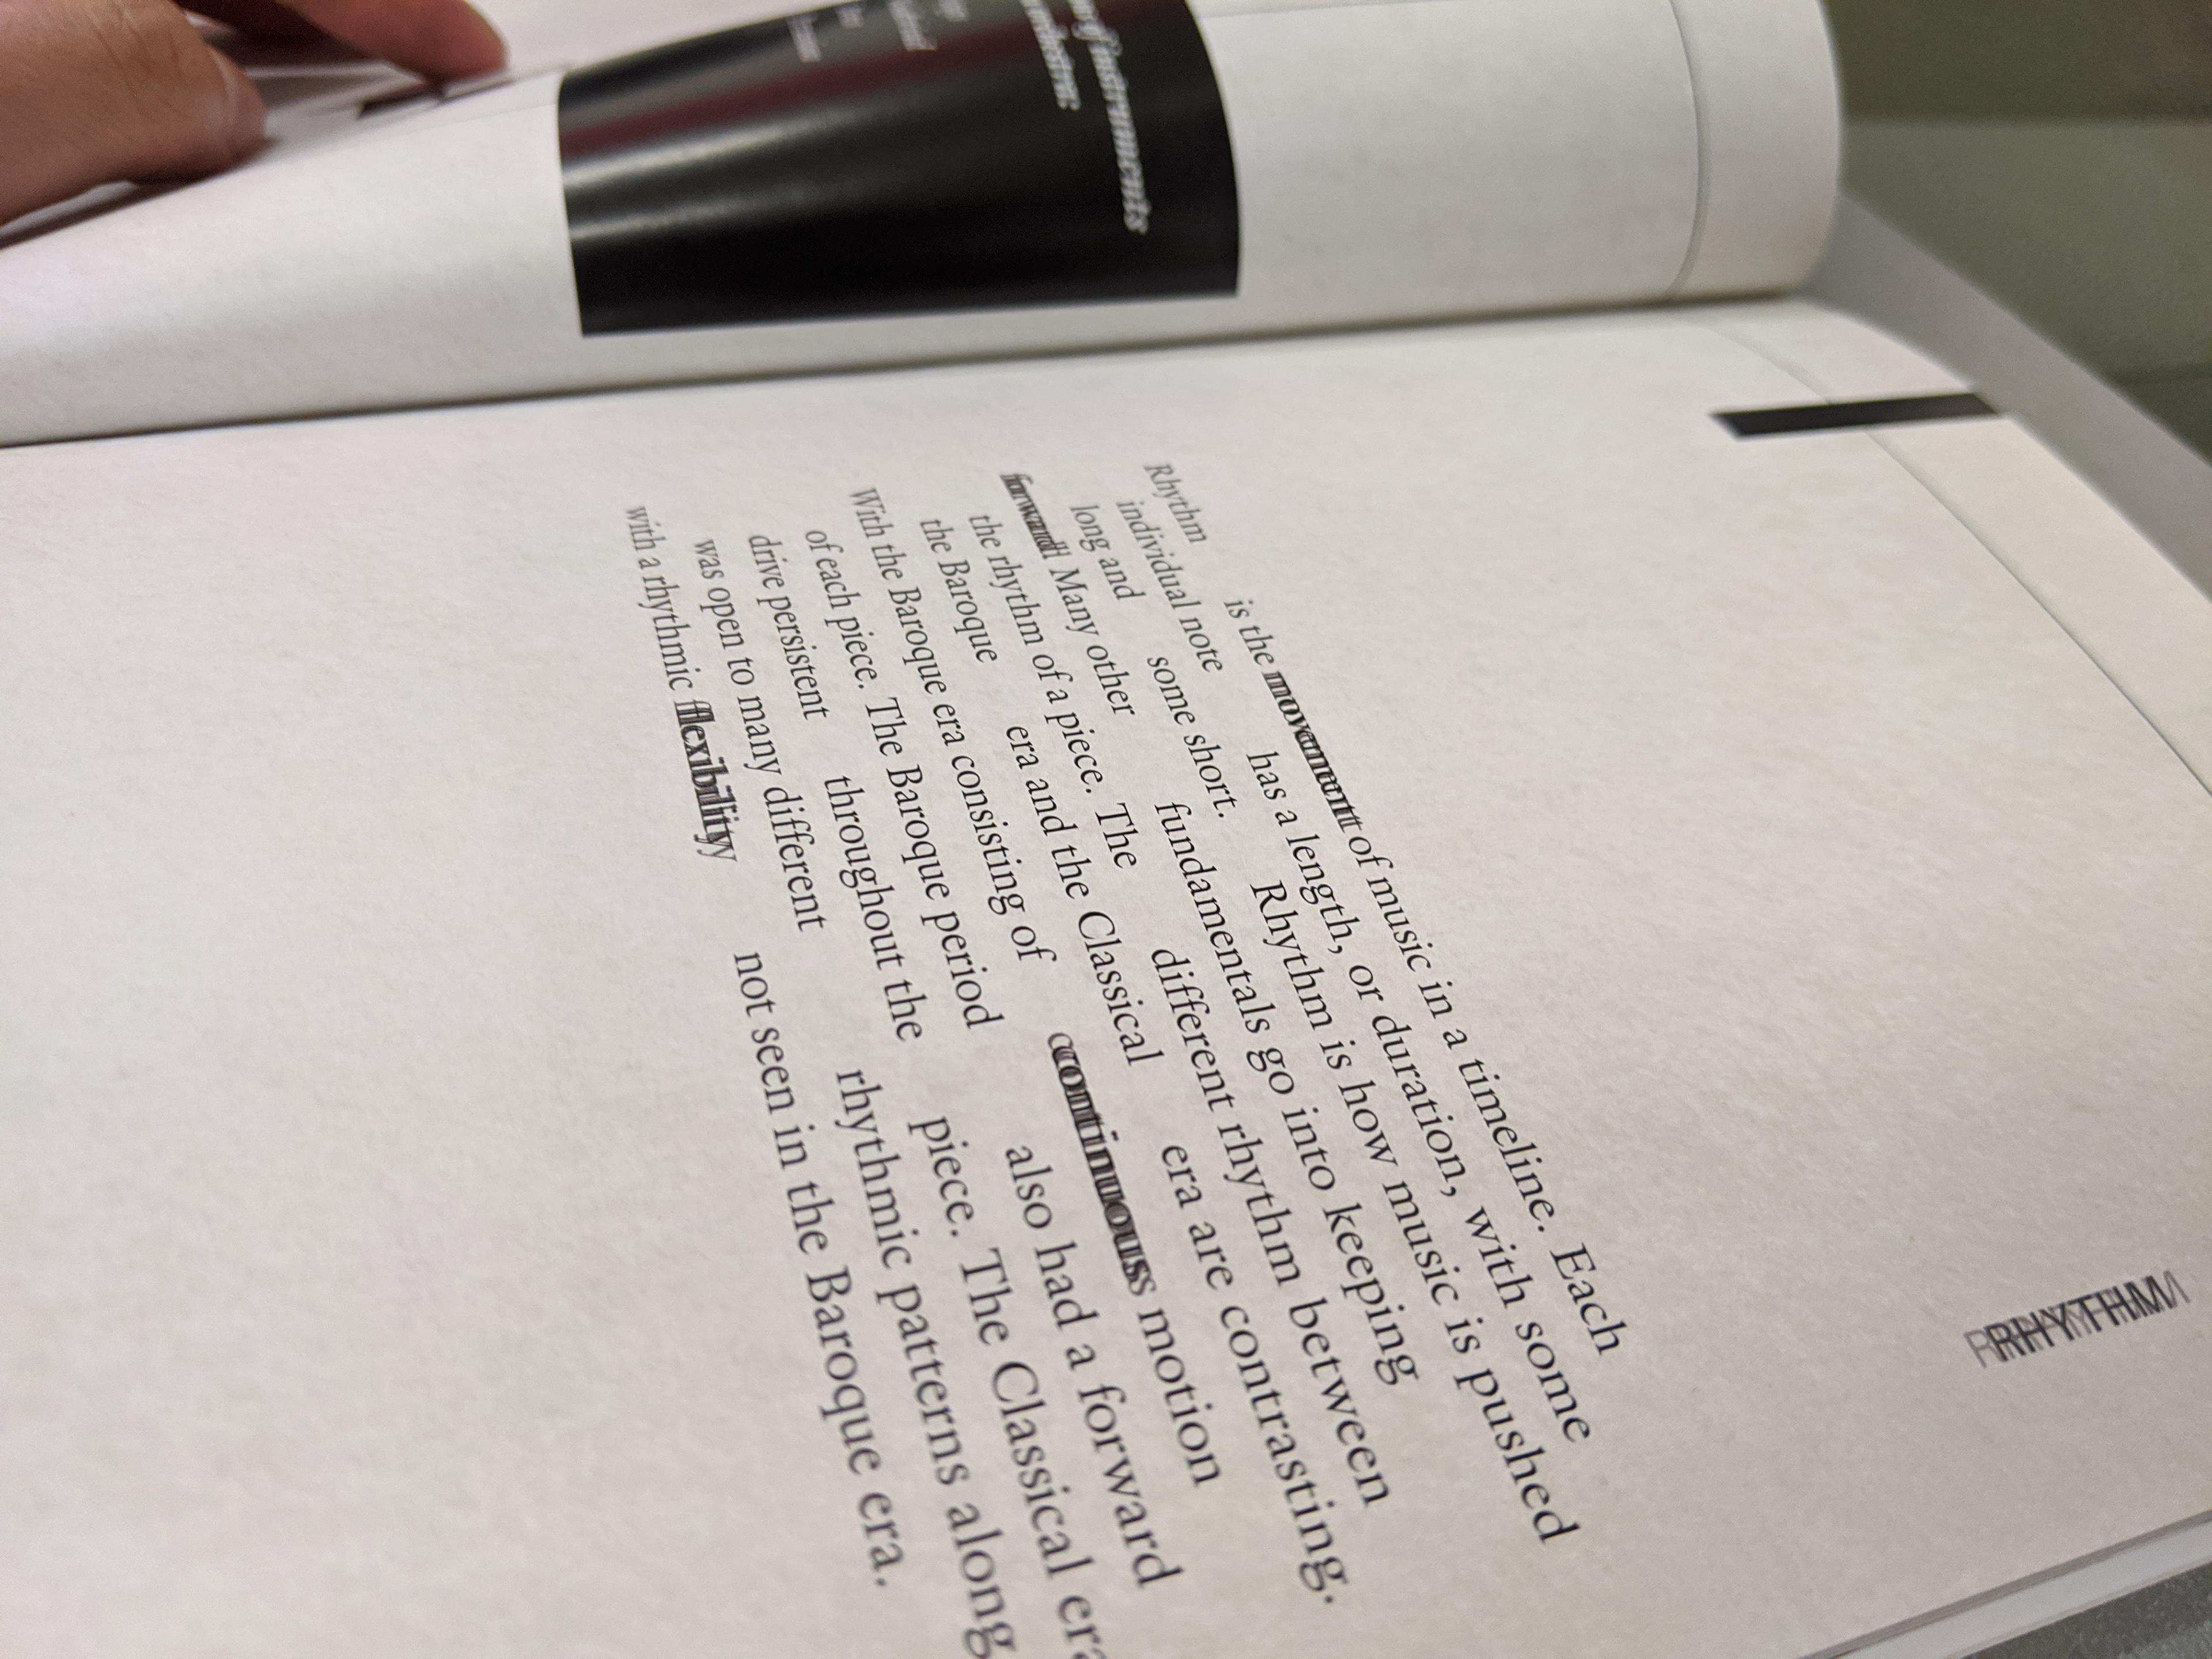 of instruments
RHYTHM
Rhythm is the movement of music in a timeline. Each
individual note has a length, or duration, with some
long and some short. Rhythm is how music is pushed
forward Many other fundamentals go into keeping
the rhythm of a piece. The different rhythm between
the Baroque era and the Classical era are contrasting.
With the Baroque era consisting of continuous motion
of each piece. The Baroque period also had a forward
drive persistent throughout the piece. The Classical era
was open to many different rhythmic patterns along
with a rhythmic flexibility not seen in the Baroque era.